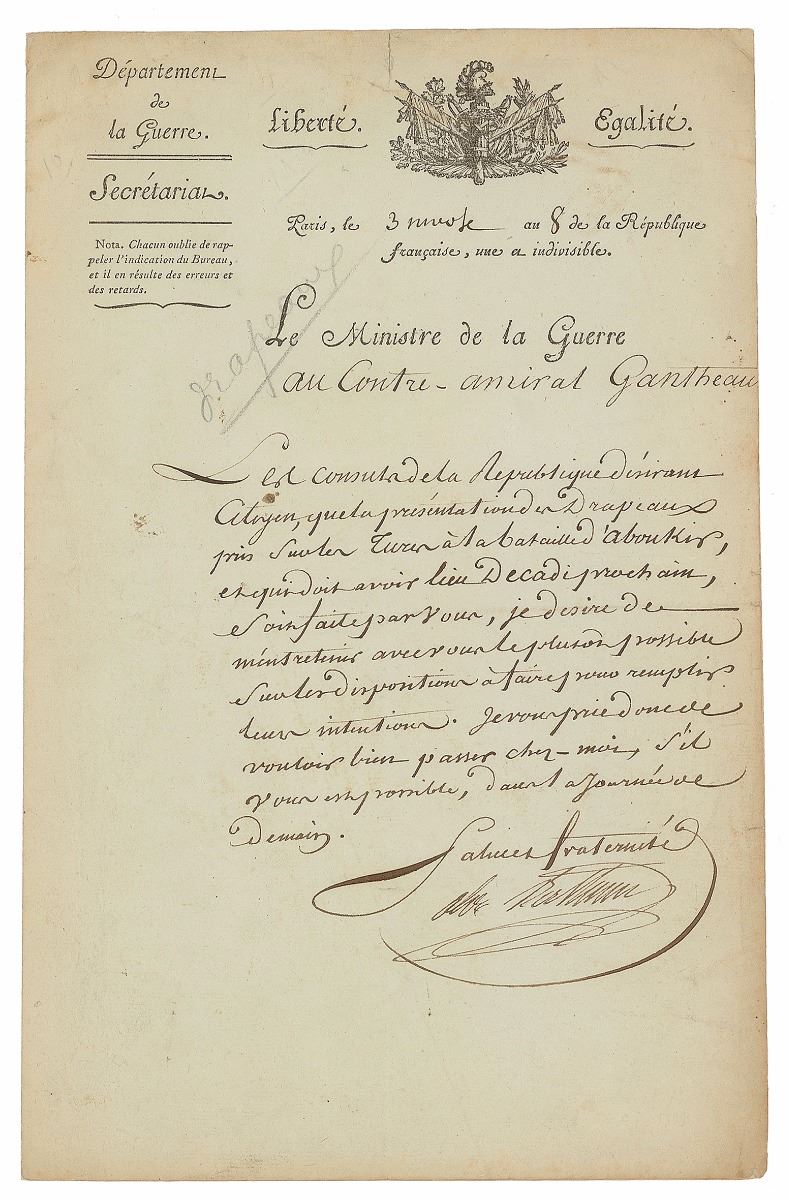 Département
de
la Guerre.
Secrétariat.
Nota. Chacun oublie de rap-
peler l'indication du Bureau,
et il en résulte des erreurs et
des retards.
Liberté.
Egalité.
Paris, le 3 nivose an 8 de la République
française, une et indivisible.
drapeaux
Le Ministre de la Guerre
au Contre-amiral Gantheau
Les Consuls de la Republique désirant
Citoyen, que la présentation des Drapeaux
pris sur les Turcs à la bataille d'Aboukir,
et qui doit avoir lieu Decadi prochain,
soit faite par vous, je desire de
m'entretenir avec vous le plutôt possible
sur les dispositions à faire pour remplir
leurs intentions. Je vous prie donc de
vouloir bien passer chez-moi, s'il
vous est possible, dans la Journée de
demain.
Salut et fraternité
alex Berthier